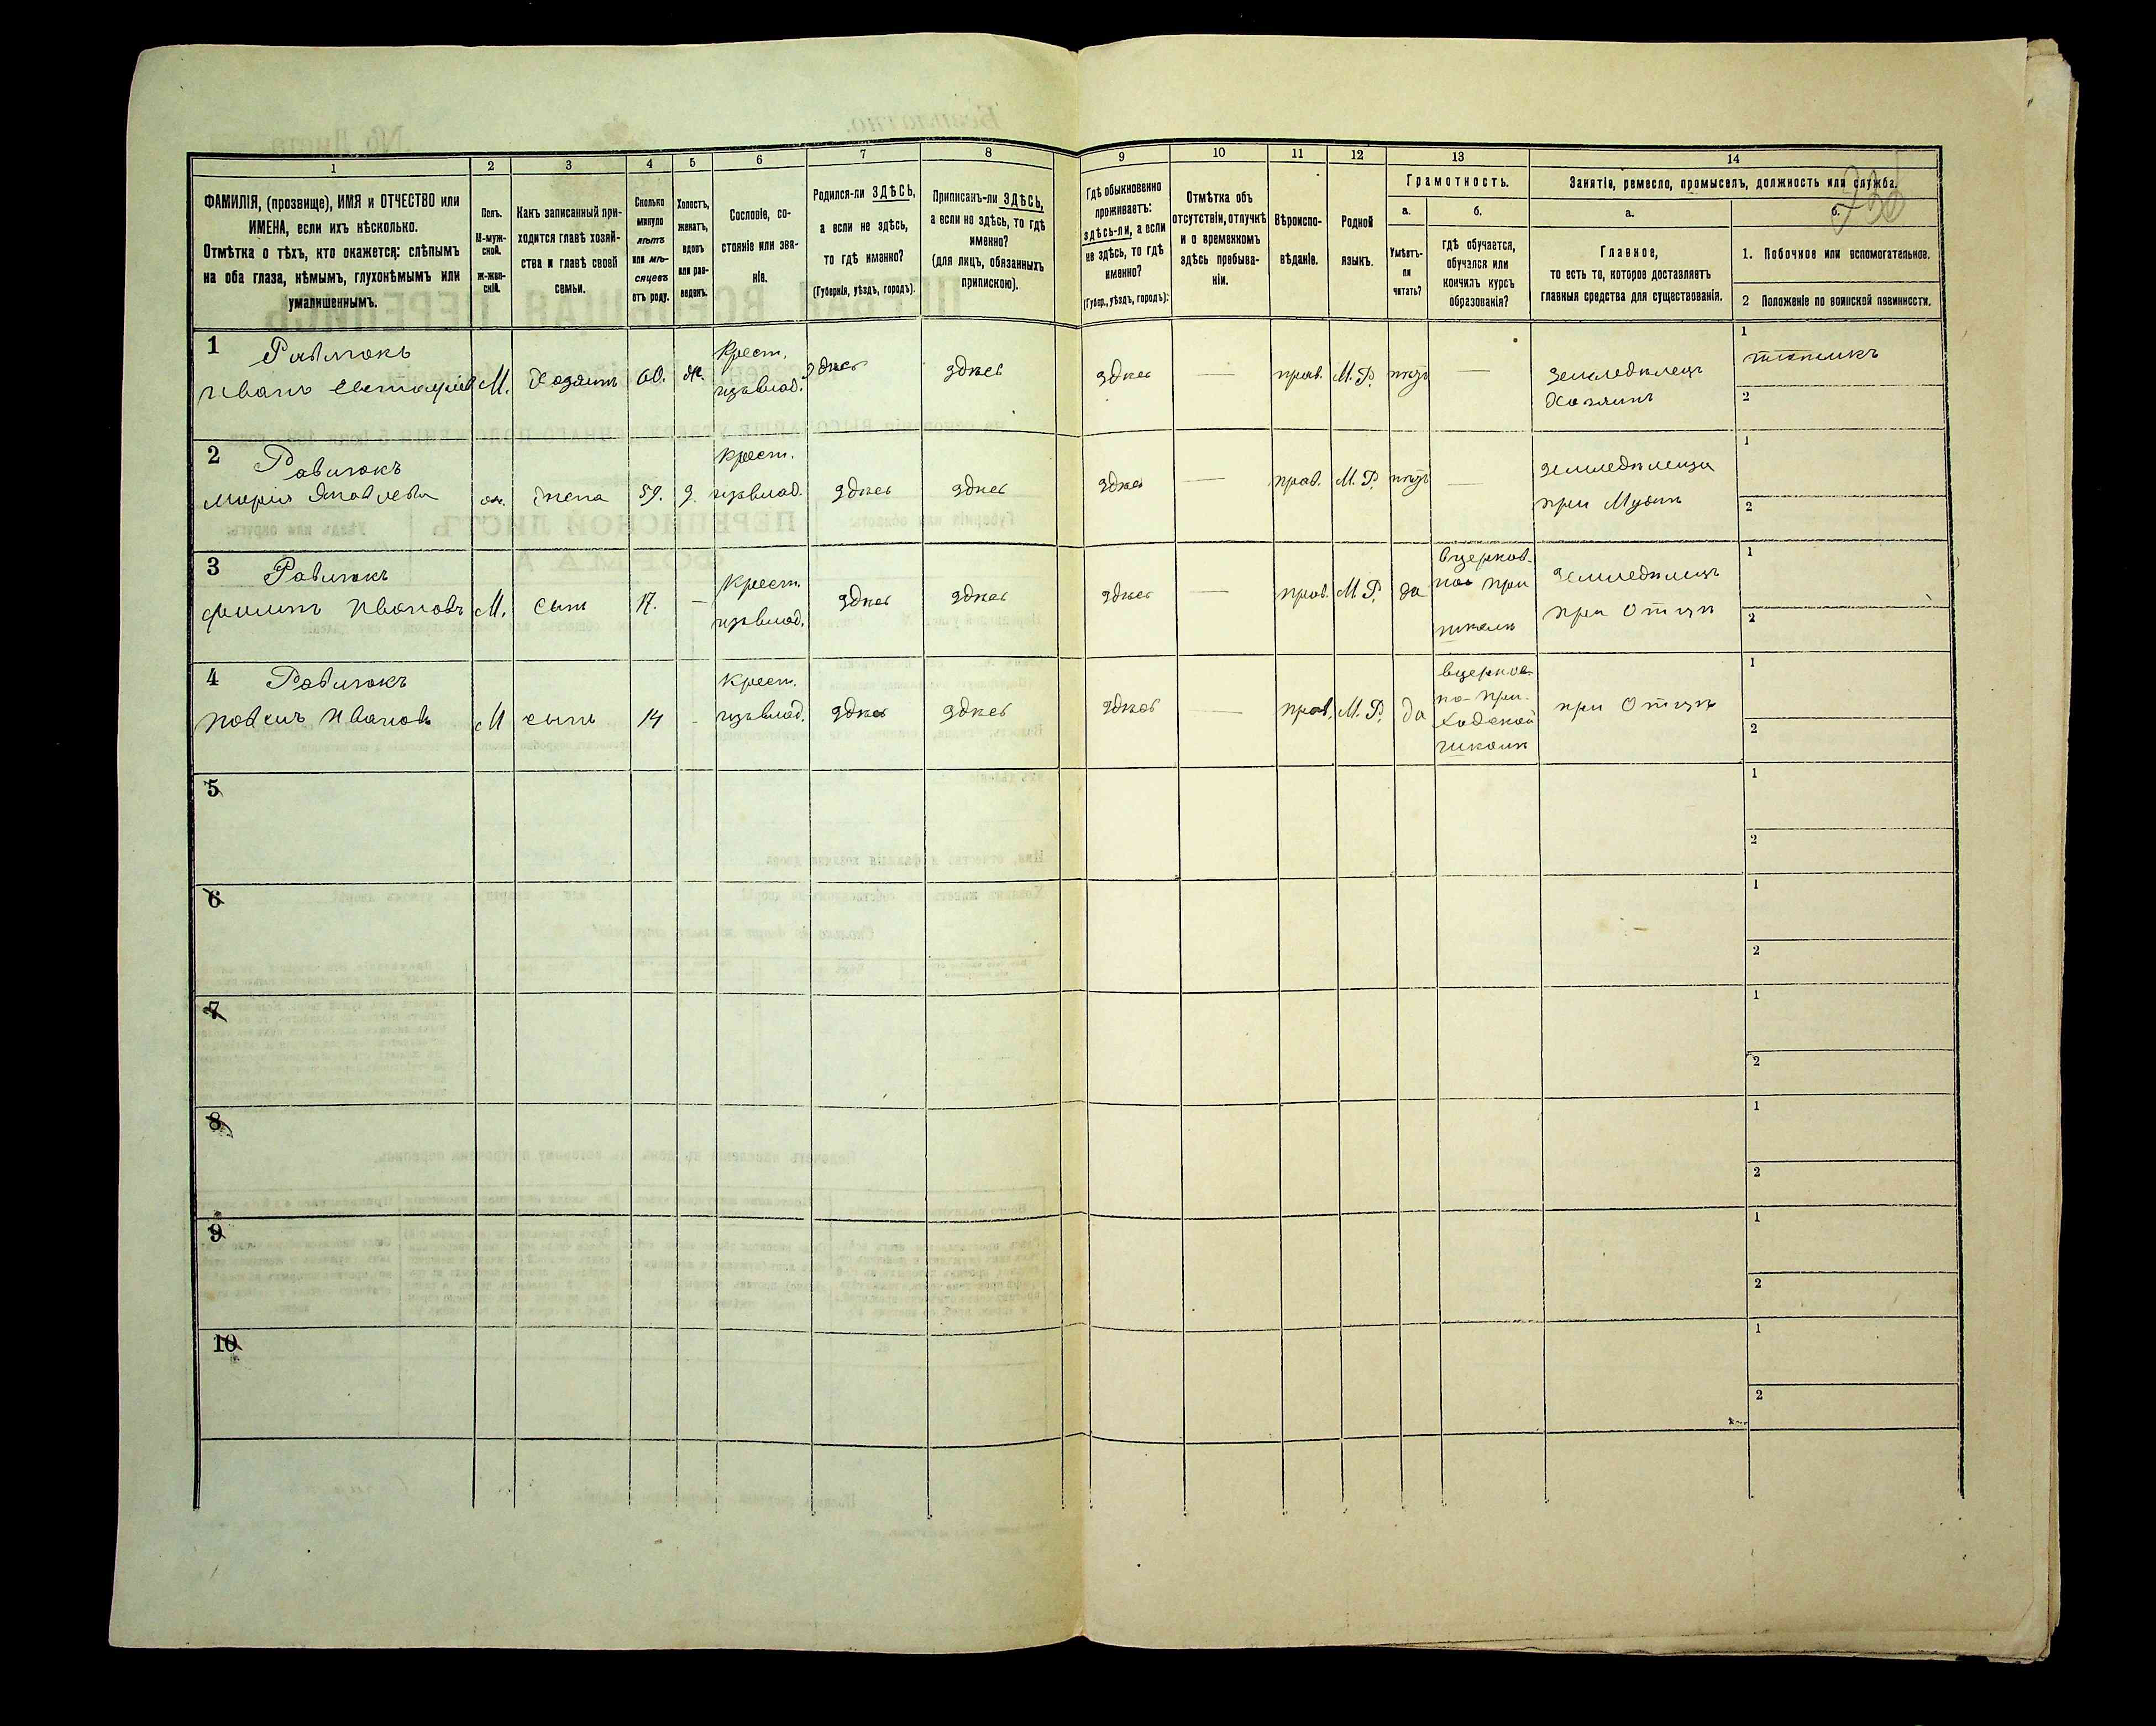 1 2 3 4 5 6 7 8 9 10 11 12 13 14
ФАМИЛІЯ, (прозвище), ИМЯ и ОТЧЕСТВО или
ИМЕНА, если ихъ нѣсколько.
Отмѣтка о тѣхъ, кто окажется: слѣпымъ
на оба глаза, нѣмымъ, глухонѣмымъ или
умалишеннымъ.
Полъ.
М-муж-
ской.
Ж-жен-
скій.
Какъ записанный при-
ходится главѣ хозяй-
ства и главѣ своей
семьи.
Сколько
минуло
лѣтъ
или мѣ-
сяцевъ
отъ роду.
Холостъ,
женатъ,
вдовъ
или раз-
веденъ.
Сословіе, со-
стояніе или зва-
ніе.
Родился-ли ЗДѢСЬ,
а если не здѣсь,
то гдѣ именно?
(Губернія, уѣздъ, городъ).
Приписанъ-ли ЗДѢСЬ,
а если не здѣсь, то гдѣ
именно?
(для лицъ, обязанныхъ
припискою).
Гдѣ обыкновенно
проживаетъ:
здѣсь-ли, а если
не здѣсь, то гдѣ
именно?
(Губер., уѣздъ, городъ).
Отмѣтка объ
отсутствіи, отлучкѣ
и о временномъ
здѣсь пребыва-
ніи.
Вѣроиспо-
вѣданіе.
Родной
языкъ.
Грамотность.
а.
Умѣетъ-
ли
читать?
б.
гдѣ обучается,
обучался или
кончилъ курсъ
образованія?
Занятіе, ремесло, промыселъ, должность или служба.
а.
Главное,
то есть то, которое доставляетъ
главныя средства для существованія.
б.
1. Побочное или вспомогательное.
2 Положеніе по воинской повинности.
1 Равлюкъ
Иванъ М. Хозяинъ 60. Ж.
Крест.
изъ влад.
здѣсь здѣсь здѣсь — прав. М. Р. нѣтъ —
земледѣлецъ
Хозяинъ
1
2
2 Равлюкъ
Марія Яковлева ж. жена 59. З.
Крест.
изъ влад.
здѣсь здѣсь здѣсь — прав. М. Р. нѣтъ —
земледѣлица
при Мужѣ
1
2
3 Равлюкъ
Филипъ Ивановъ М. сынъ 17. —
Крест.
изъ влад.
здѣсь здѣсь здѣсь — прав. М. Р. да
вцерков-
но при
школѣ
земледѣлецъ
при Отцѣ
1
2
4 Равлюкъ
Павелъ Ивановъ М сынъ 14 -
Крест.
изъ влад.
здѣсь здѣсь здѣсь — прав. М. Р. да
вцерков-
но-при-
ходской
школѣ
при Отцѣ
1
2
5
1
2
6
1
2
7
1
2
8
1
2
9
1
2
10
1
2